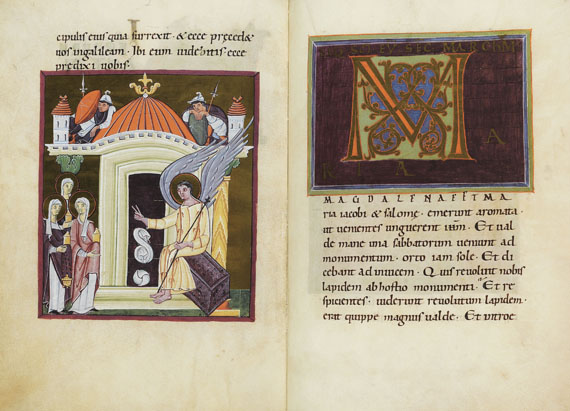 cipulis eius quia surrexit · & ecce precedæ
uos in galileam · Ibi eum uidebitis · ecce
predixi uobis ·
SEQ S EV SEC MARCUM
M
A
R I A
MAGDALENA ET MA
ria iacobi & salome · emerunt aromata ·
ut uenientes unguerent ihm · Et ual
de mane una sabbatorum ueniunt ad
monumentum · orto iam sole · Et di
cebant ad inuicem · Quis reuoluet nobis
lapidem ab hostio monumenti · Et re
spicientes · uiderunt reuolutum lapidem ·
erat quippe magnus ualde · Et introe